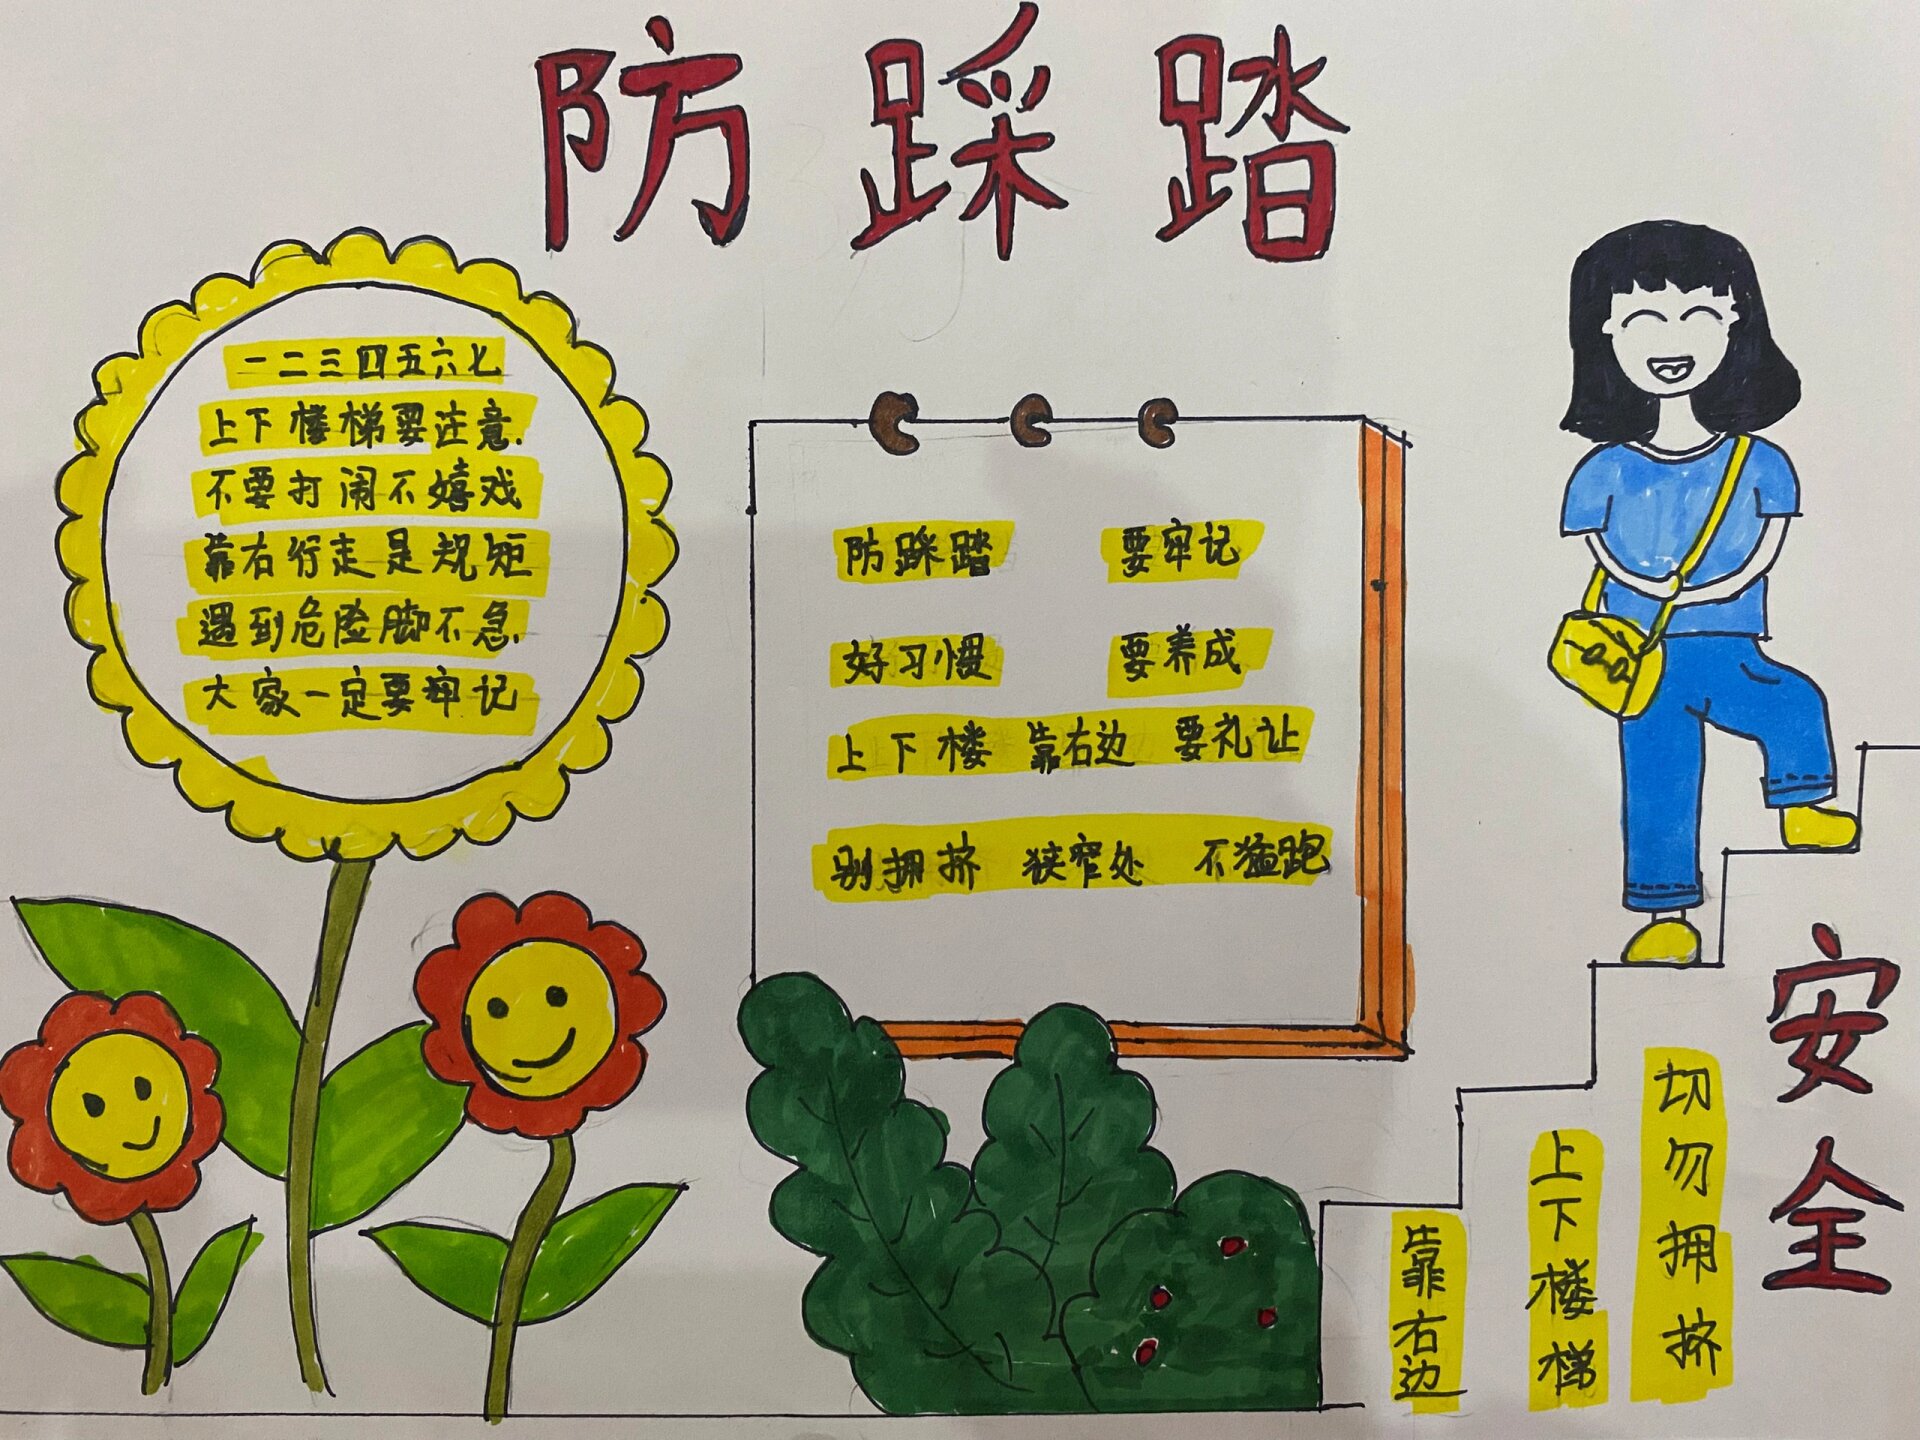 防踩踏
一二三四五六七
上下楼梯要注意.
不要打闹不嬉戏
靠右行走是规矩
遇到危险脚不急.
大家一定要牢记
防踩踏 要牢记
好习惯 要养成
上下楼 靠右边 要礼让
别拥挤 狭窄处 不猛跑
安全
切勿拥挤
上下楼梯
靠右边